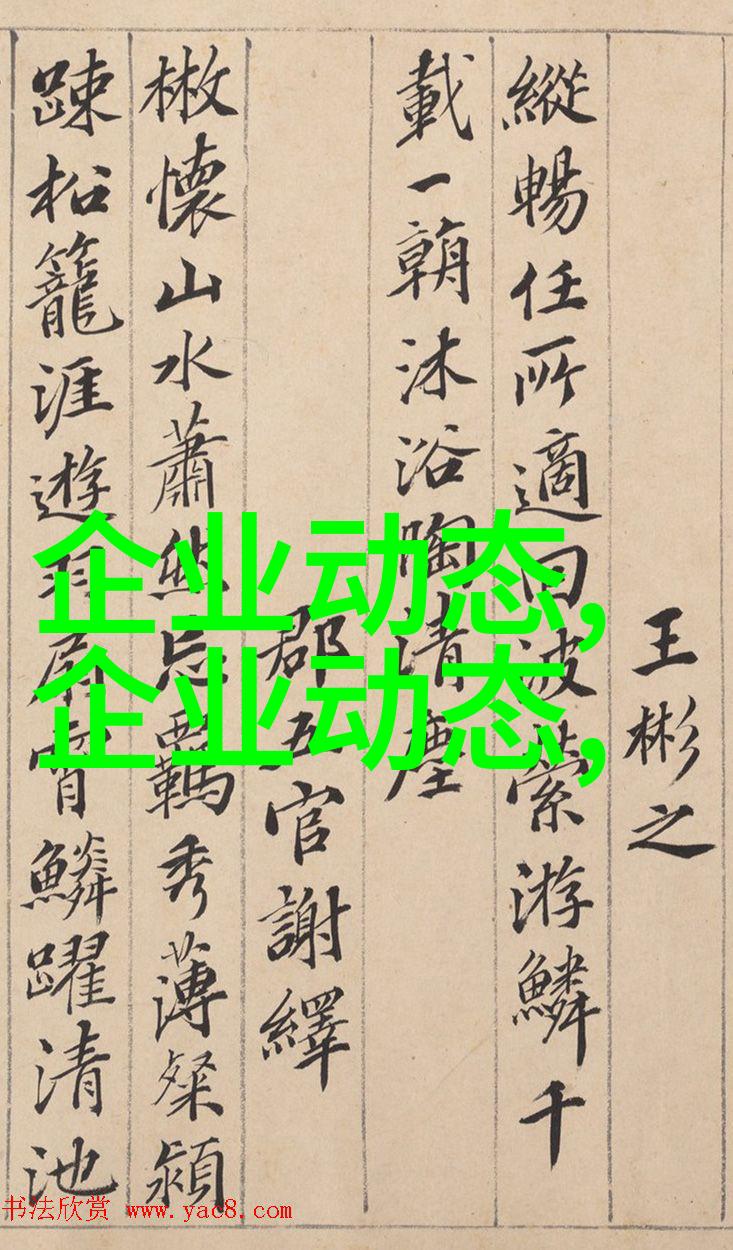 王彬之
縱暢任所適回波縈游鱗千
載一朝沐浴陶清塵
郡五官謝繹
㪔懷山水蕭然忘羈秀薄粲穎
踈松籠涯遊羽扇霄鱗躍清池
企业动态,
企业动态,
书法欣赏 www.yac8.com